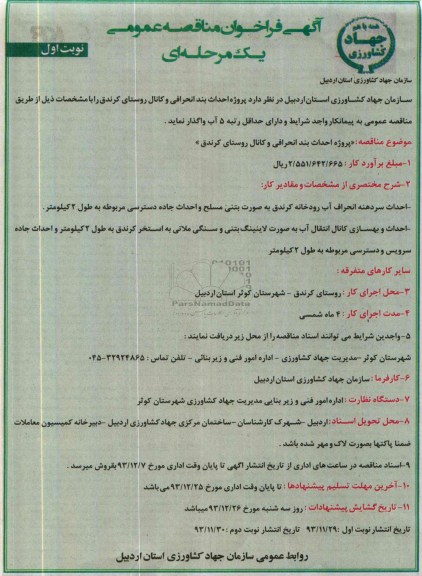 همه با هم
جهاد
کشاورزی
آگهی فراخوان مناقصه عمومی
یک مرحله‌ای
نوبت اول
سازمان جهاد کشاورزی استان اردبیل
سازمان جهاد کشاورزی استان اردبیل در نظر دارد پروژه احداث بند انحرافی و کانال روستای کرندق را با مشخصات ذیل از طریق
مناقصه عمومی به پیمانکار واجد شرایط و دارای حداقل رتبه ۵ آب واگذار نماید .
موضوع مناقصه: «پروژه احداث بند انحرافی و کانال روستای کرندق »
۱-مبلغ برآورد کار : ۲/۵۵۱/۶۴۲/۶۶۵ ریال
۲-شرح مختصری از مشخصات و مقادیر کار:
-احداث سردهنه انحراف آب رودخانه کرندق به صورت بتنی مسلح و احداث جاده دسترسی مربوطه به طول ۲کیلومتر .
-احداث و بهسازی کانال انتقال آب به صورت لاینینگ بتنی و سنگی ملاتی به استخر کرندق به طول ۲کیلومتر و احداث جاده
سرویس و دسترسی مربوطه به طول ۲کیلومتر
سایر کارهای متفرقه :
۳-محل اجرای کار : روستای کرندق - شهرستان کوثر استان اردبیل
۴-مدت اجرای کار : ۴ ماه شمسی
۵-واجدین شرایط می توانند اسناد مناقصه را از محل زیر دریافت نمایند :
شهرستان کوثر -مدیریت جهاد کشاورزی - اداره امور فنی و زیربنائی - تلفن تماس : ۳۲۹۲۴۸۶۵-۰۴۵
۶-کارفرما : سازمان جهاد کشاورزی استان اردبیل
۷-دستگاه نظارت : اداره امور فنی و زیر بنایی مدیریت جهاد کشاورزی شهرستان کوثر
۸-محل تحویل اسناد: اردبیل -شهرک کارشناسان -ساختمان مرکزی جهاد کشاورزی اردبیل -دبیرخانه کمیسیون معاملات
ضمنا پاکتها بصورت لاک و مهر شده باشد .
۹-اسناد مناقصه در ساعت های اداری از تاریخ انتشار آگهی تا پایان وقت اداری مورخ ۹۳/۱۲/۷ بفروش میرسد .
۱۰-آخرین مهلت تسلیم پیشنهادها : تا پایان وقت اداری مورخ ۹۳/۱۲/۲۵ می باشد
۱۱-تاریخ گشایش پیشنهادات : روز سه شنبه مورخ ۹۳/۱۲/۲۶ میباشد
تاریخ انتشار نوبت اول :۹۳/۱۱/۲۹ تاریخ انتشار نوبت دوم :۹۳/۱۱/۳۰
روابط عمومی سازمان جهاد کشاورزی استان اردبیل
ParsNamadData